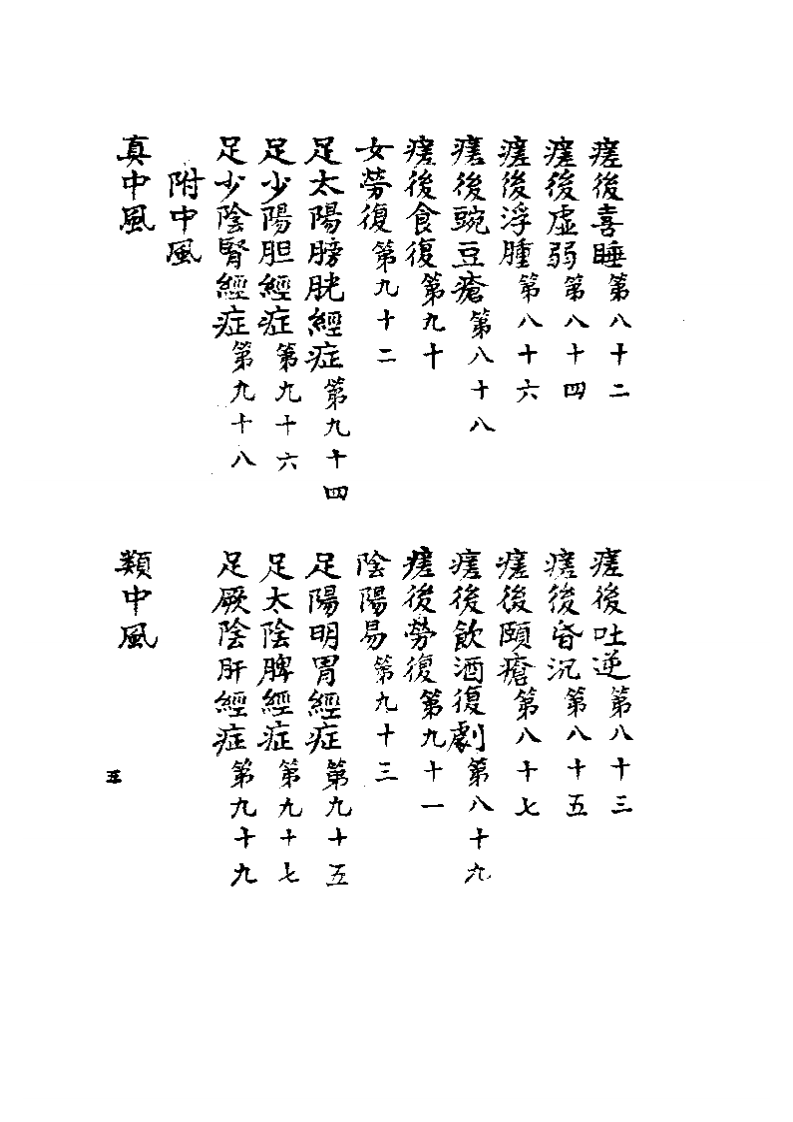 瘥後喜睡第八十二
瘥後吐逆第八十三
瘥後虛弱第八十四
瘥後昏沉第八十五
瘥後浮腫第八十六
瘥後頤瘡第八十七
瘥後豌豆瘡第八十八
瘥後飲酒復劇第八十九
瘥後食復第九十
瘥後勞復第九十一
女勞復第九十二
陰陽易第九十三
足太陽膀胱經症第九十四
足陽明胃經症第九十五
足少陽胆經症第九十六
足太陰脾經症第九十七
足少陰腎經症第九十八
足厥陰肝經症第九十九
附中風
真中風
類中風
五